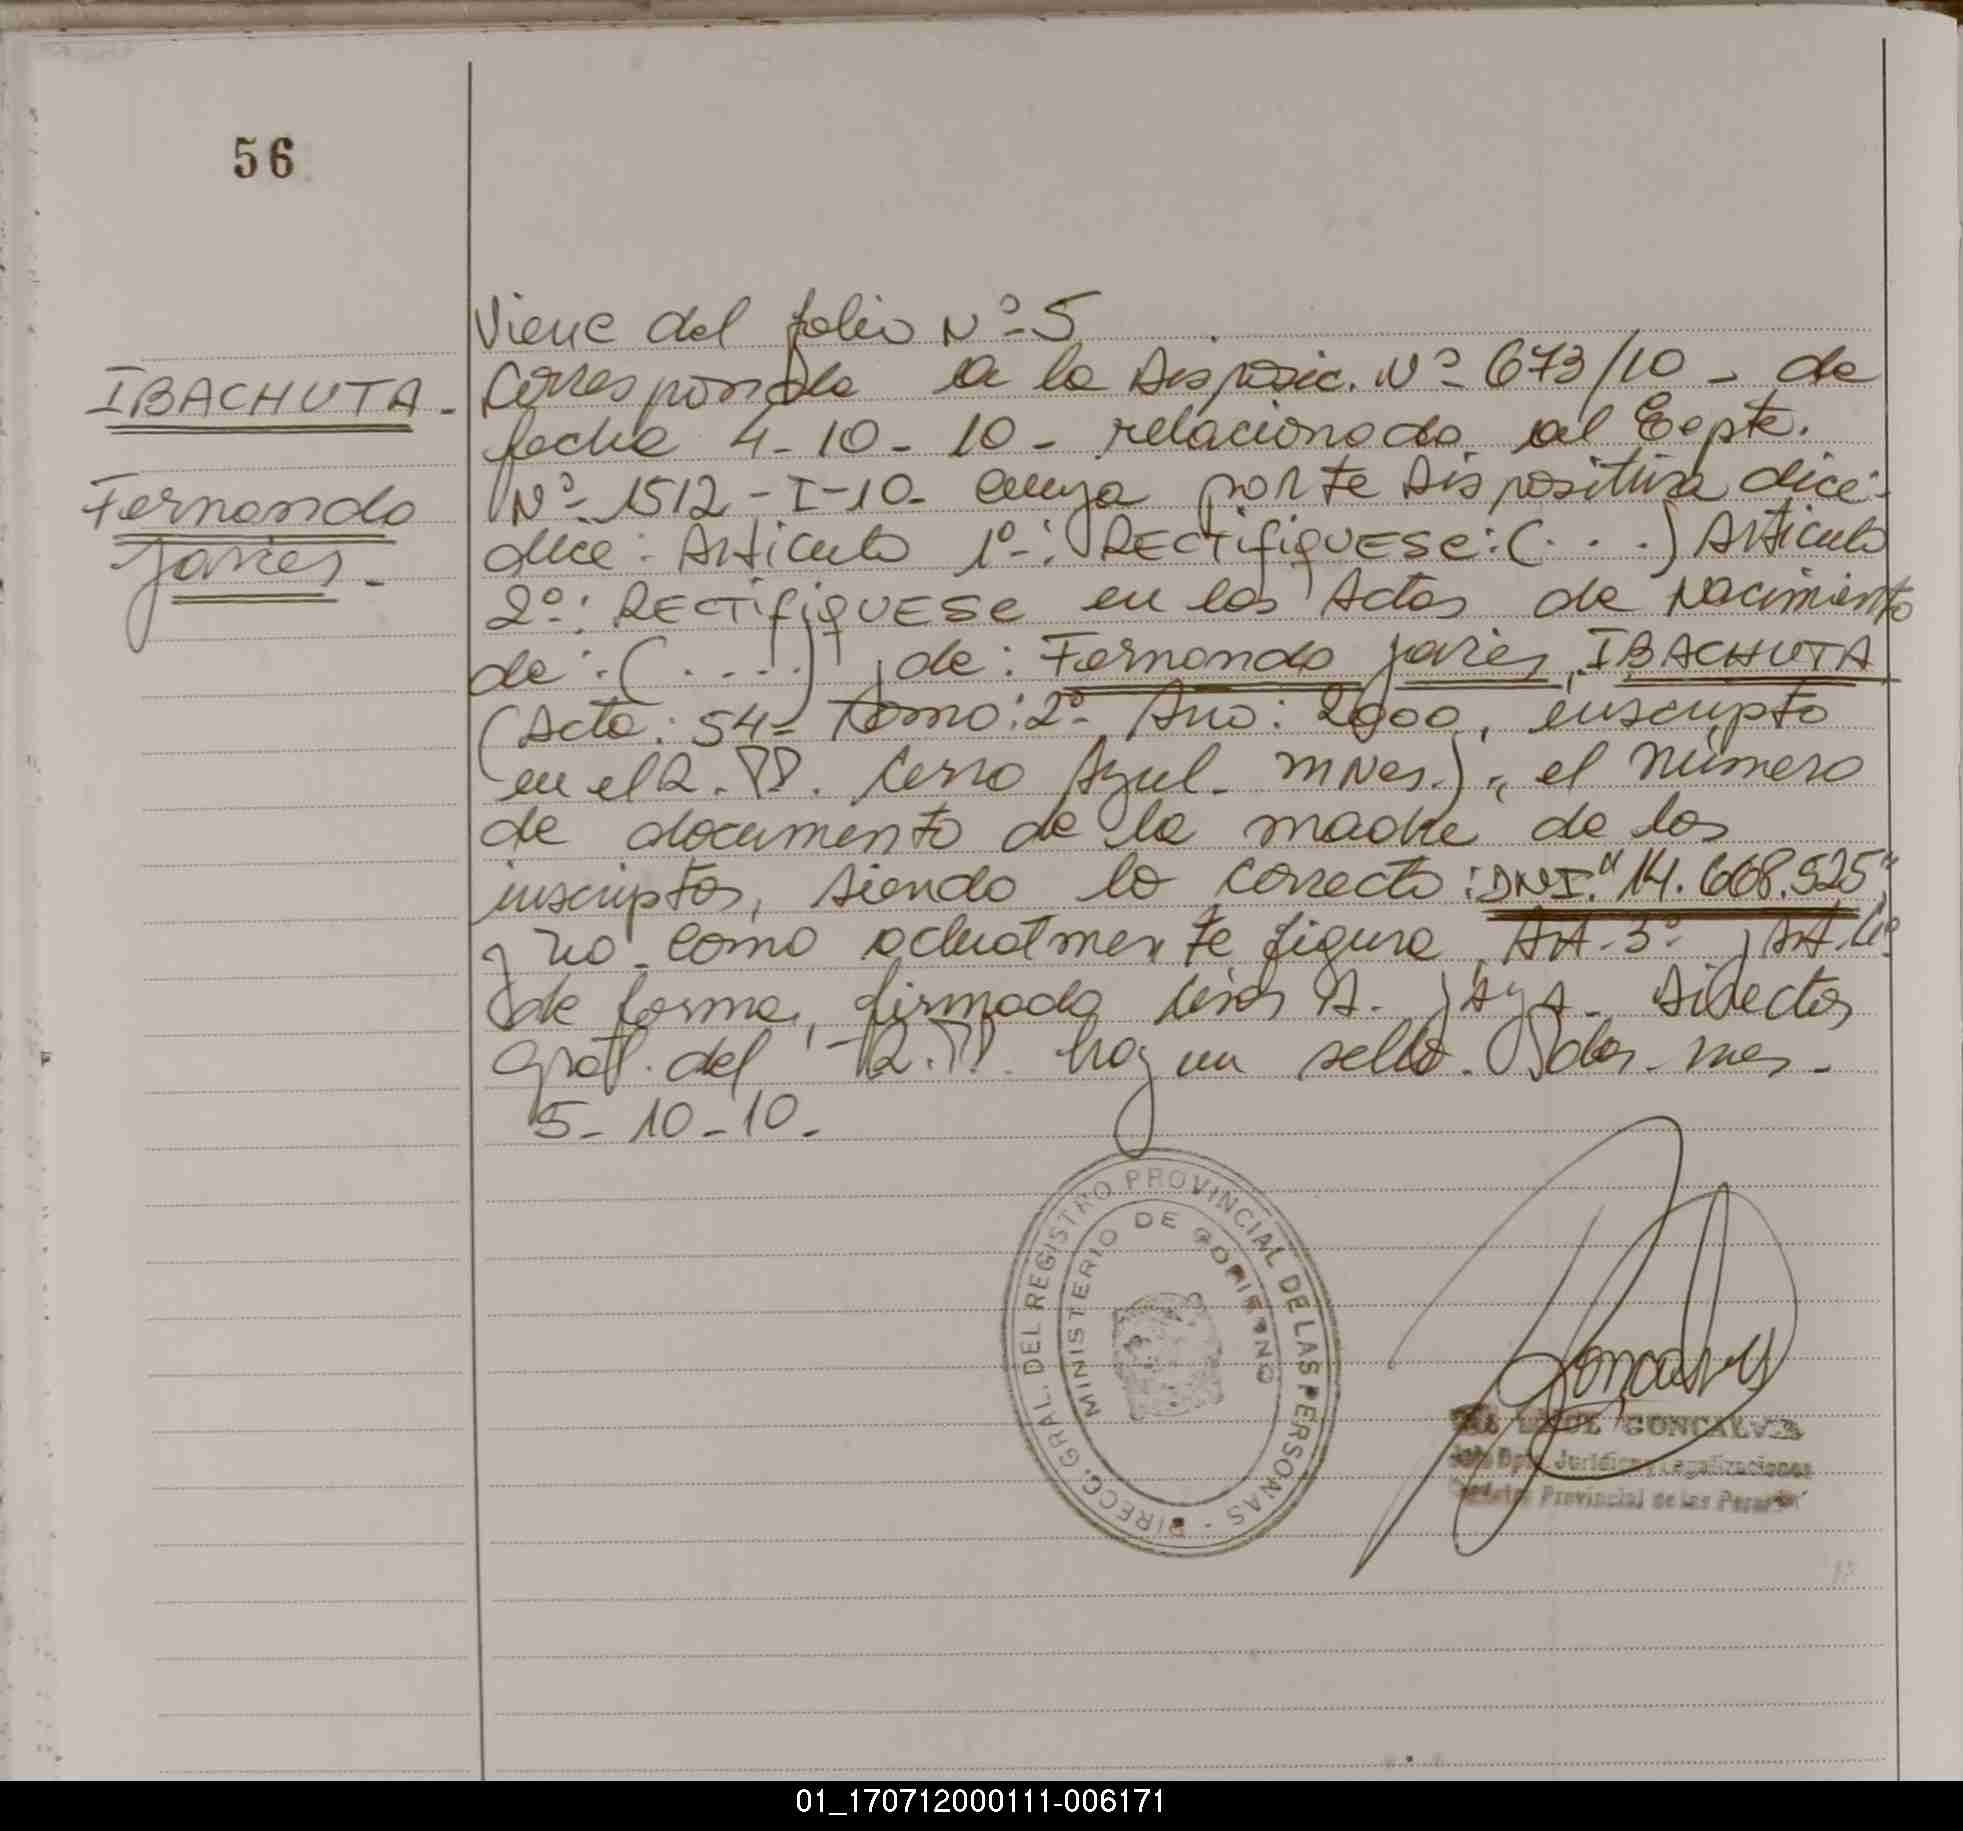 56
Viene del folio Nº 5
IBACHUTA.
Fernando
Javier.
Corresponde a la Disposic. Nº 673/10 - de
fecha 4-10-10- relacionado al Expte.
Nº 1512-I-10- cuya parte Dispositiva dice:
dice: Articulo 1º: RECTIFIQUESE: (...) Articulo
2º: RECTIFIQUESE en las Actas de Nacimiento
de: (....) de: Fernando Javier IBACHUTA
(Acta: 54- Tomo: 2º- Año: 2000, inscripto
en el R.PP. Cerro Azul- Mnes.), el número
de documento de la madre de los
inscriptos, siendo lo correcto: DNI. "14.668.525"
y no como actualmente figura, Art. 3º, Art. 4º
de forma, firmado A. Director
Gral. del R.PP. hay un sello. Pdas. mes.
5-10-10.
DIRECC. GRAL. DEL REGISTRO PROVINCIAL DE LAS PERSONAS -
MINISTERIO DE GOBIERNO
GONCALVES
Jefe Dpto. Jurídico y Legalizaciones
Registro Provincial de las Personas
01_170712000111-006171